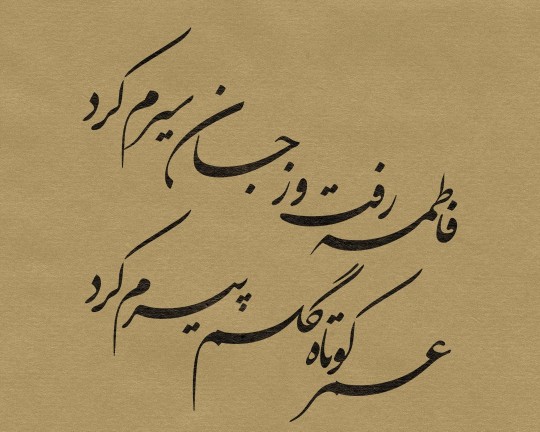 فاطمه رفت وز جان سیرم کرد
عمر کوتاه گلم پیرم کرد